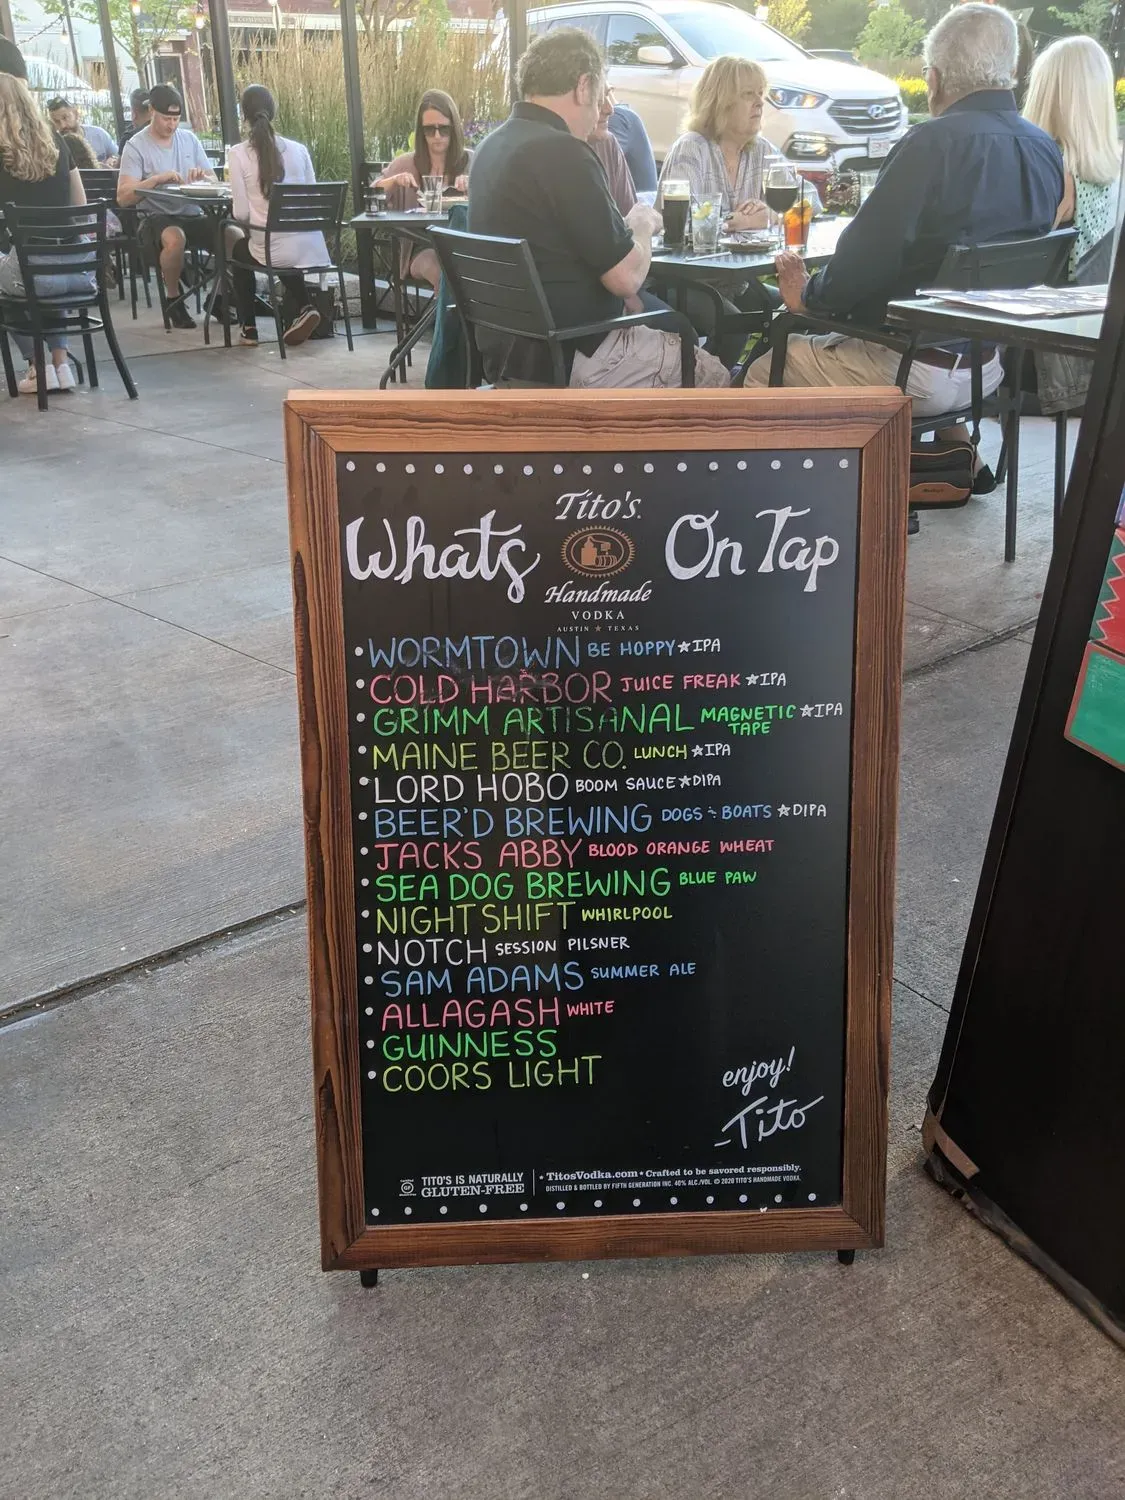 Tito's
Whats On Tap
Handmade
VODKA
AUSTIN ★ TEXAS
• WORMTOWN BE HOPPY ★ IPA
• COLD HARBOR JUICE FREAK ★ IPA
• GRIMM ARTISANAL MAGNETIC TAPE ★ IPA
• MAINE BEER CO. LUNCH ★ IPA
• LORD HOBO BOOM SAUCE ★ DIPA
• BEER'D BREWING DOGS & BOATS ★ DIPA
• JACKS ABBY BLOOD ORANGE WHEAT
• SEA DOG BREWING BLUE PAW
• NIGHT SHIFT WHIRLPOOL
• NOTCH SESSION PILSNER
• SAM ADAMS SUMMER ALE
• ALLAGASH WHITE
• GUINNESS
• COORS LIGHT
enjoy!
-Tito
TITO'S IS NATURALLY
GLUTEN-FREE
★ TitosVodka.com ★ Crafted to be savored responsibly.
DISTILLED & BOTTLED BY FIFTH GENERATION INC. 40% ALC./VOL. © 2020 TITO'S HANDMADE VODKA.